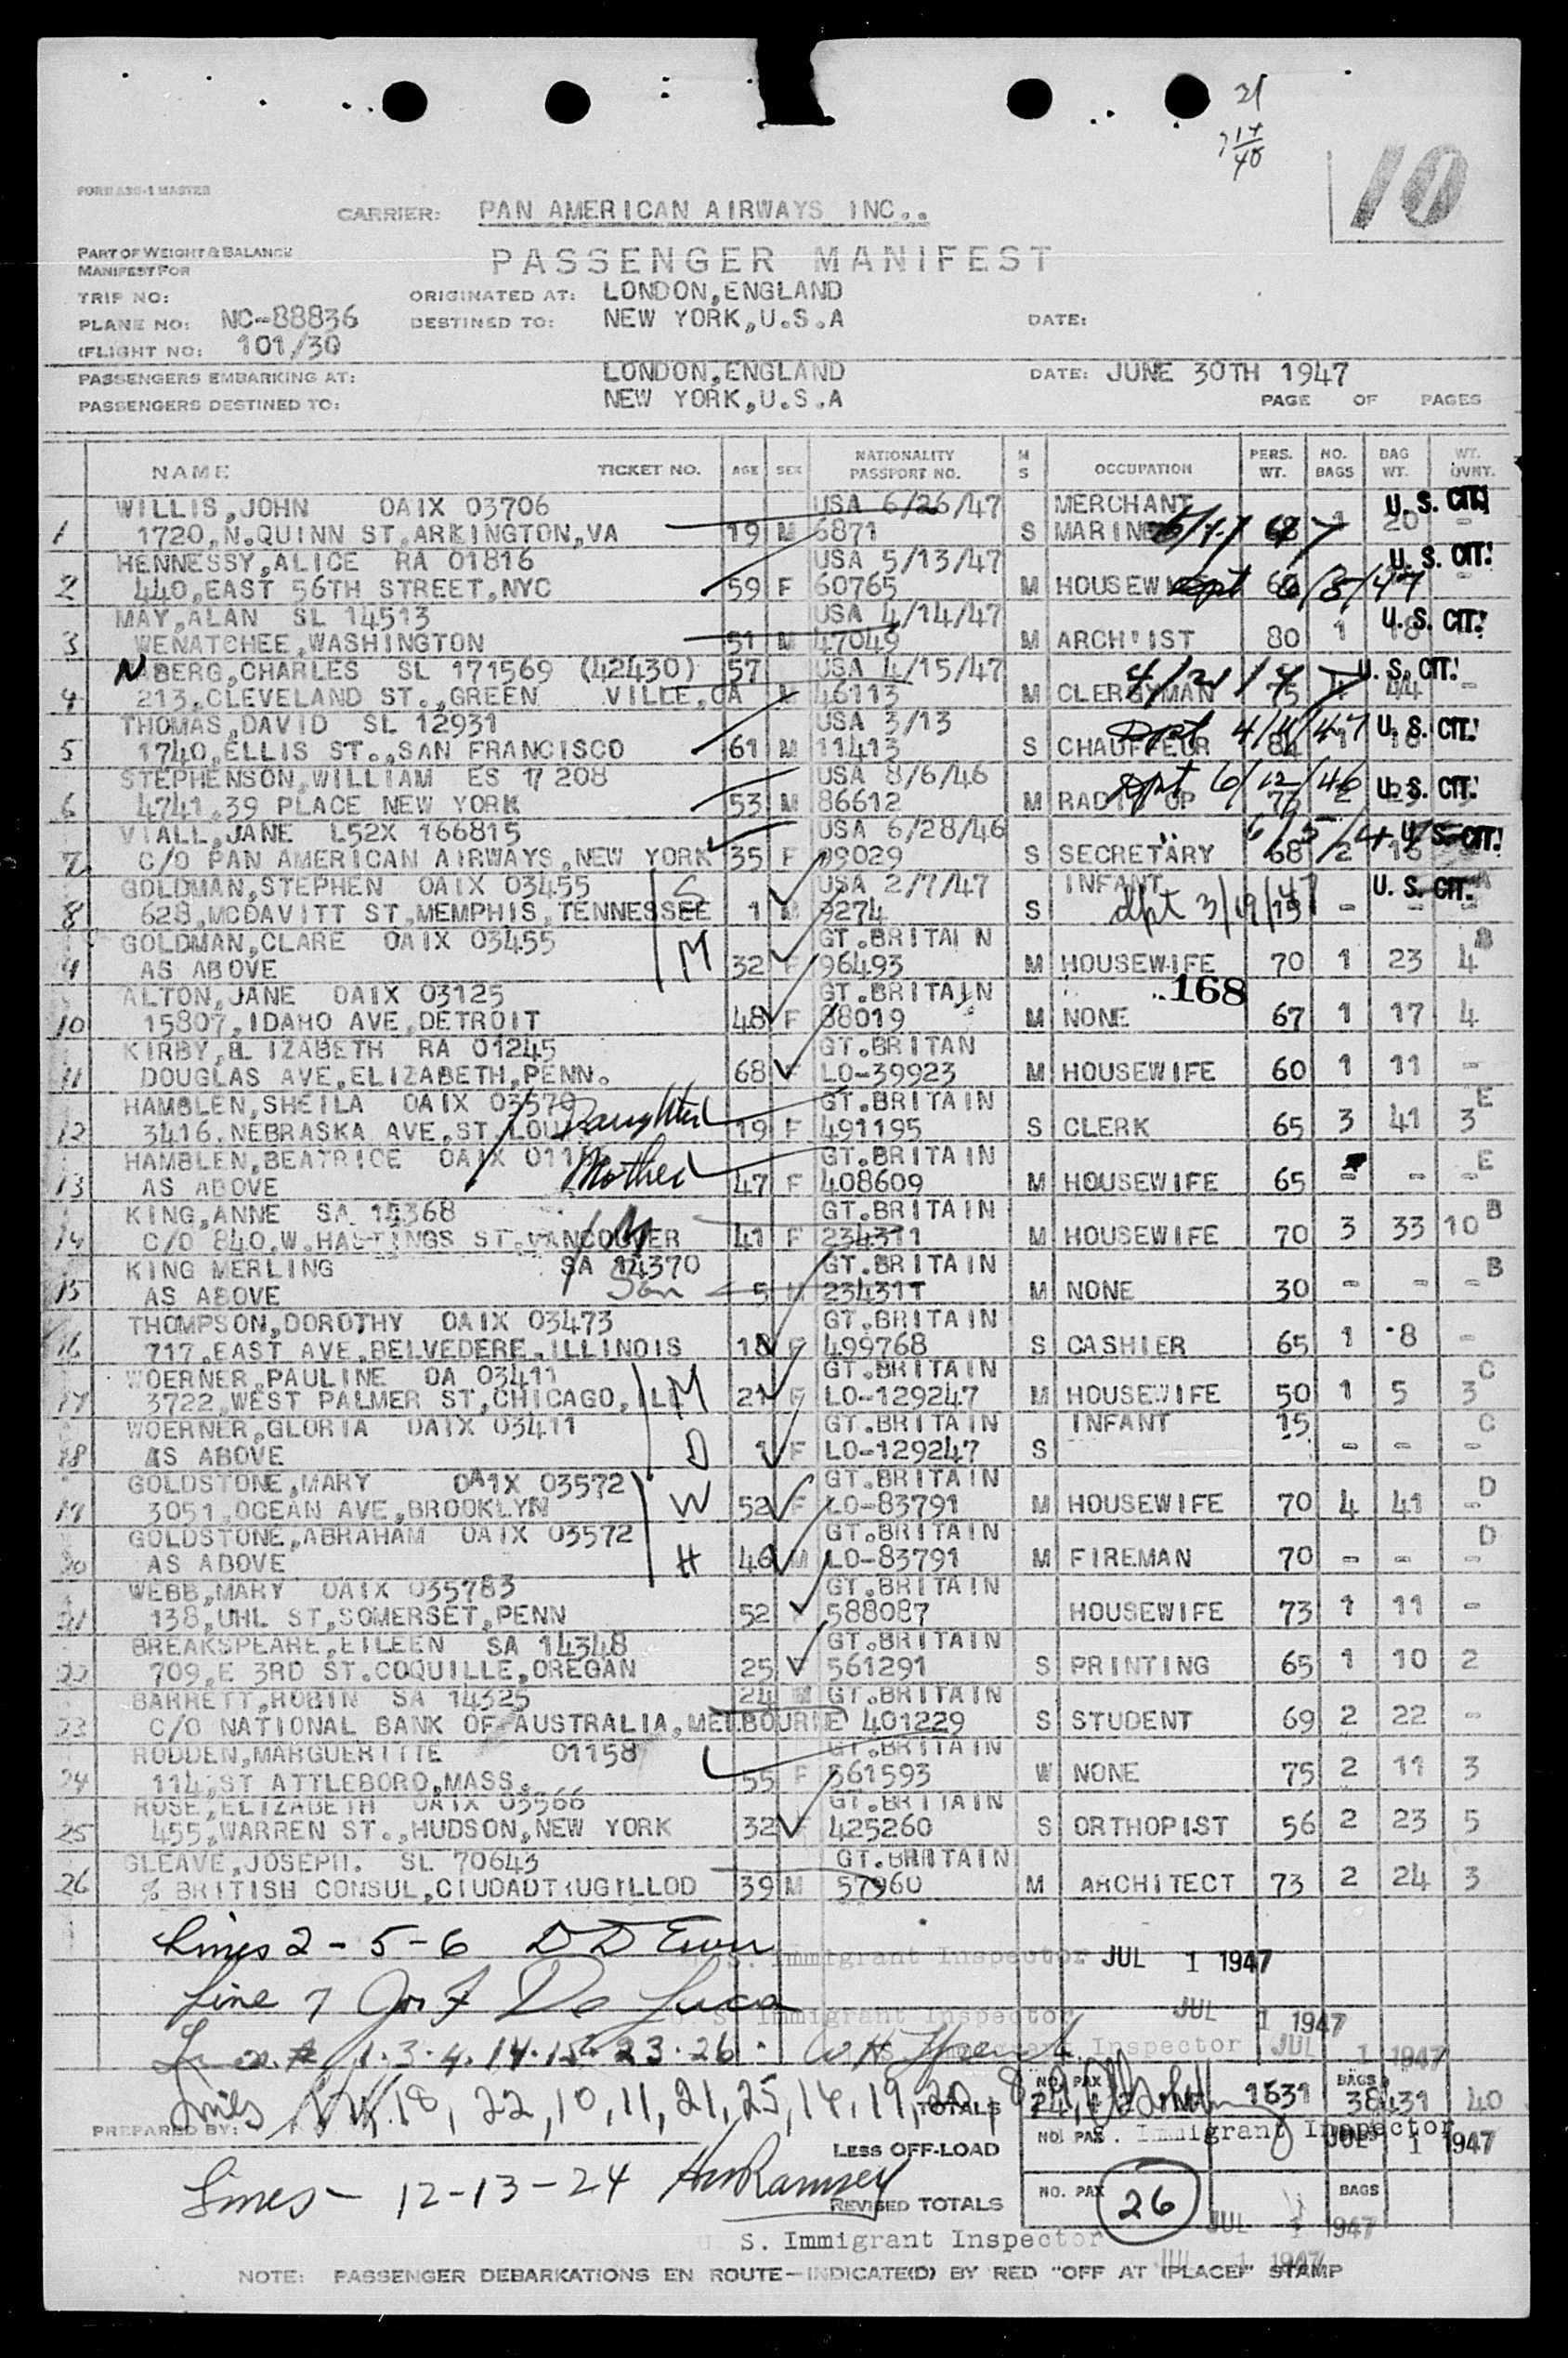 21
17
40
10
FORM ABC-1 MASTER
CARRIER: PAN AMERICAN AIRWAYS INC..
PART OF WEIGHT & BALANCE
MANIFEST FOR
PASSENGER MANIFEST
TRIP NO:
ORIGINATED AT: LONDON,ENGLAND
PLANE NO: NC-88836 DESTINED TO: NEW YORK,U.S.A DATE:
(FLIGHT NO: 101/30
PASSENGERS EMBARKING AT: LONDON,ENGLAND DATE: JUNE 30TH 1947
PASSENGERS DESTINED TO: NEW YORK,U.S.A
PAGE OF PAGES
NAME TICKET NO. AGE SEX NATIONALITY PASSPORT NO. M S OCCUPATION PERS. WT. NO. BAGS BAG WT. WT. OVNT.
WILLIS,JOHN OAIX 03706 USA 6/26/47 MERCHANT U. S. CIT.
1 1720,N.QUINN ST,ARKINGTON,VA 19 M 6871 S MARINE 1 20 -
HENNESSY,ALICE RA 01816 USA 5/13/47 U. S. CIT.
2 440,EAST 56TH STREET,NYC 59 F 60765 M HOUSEWIFE dpt 6/8/47 -
MAY,ALAN SL 14513 USA 4/14/47 U. S. CIT.
3 WENATCHEE,WASHINGTON 51 M 47049 M ARCH'IST 80 1 18
NABERG,CHARLES SL 171569 (42430) 57 USA 4/15/47 U. S. CIT.
4 213,CLEVELAND ST.,GREEN VILLE,CA M 46113 M CLERGYMAN 75 44 -
THOMAS,DAVID SL 12931 USA 3/13 dpt 4/11/47 U. S. CIT.
5 1740,ELLIS ST.,SAN FRANCISCO 61 M 11413 S CHAUFFEUR 84 1 18
STEPHENSON,WILLIAM ES 17 208 USA 8/6/46 dpt 6/12/46 U. S. CIT.
6 4741,39 PLACE NEW YORK 53 M 86612 M RADIO OP 77 2
VIALL,JANE L52X 166815 USA 6/28/46 U. S. CIT.
7 C/O PAN AMERICAN AIRWAYS,NEW YORK 35 F 99029 S SECRETARY 68 2 16
GOLDMAN,STEPHEN OAIX 03455 S USA 2/7/47 INFANT U. S. CIT. A
8 628,MCDAVITT ST,MEMPHIS,TENNESSEE 1 M 9274 S dpt 3/19/47 15 - - -
GOLDMAN,CLARE OAIX 03455 M GT.BRITAIN B
9 AS ABOVE 32 F 96493 M HOUSEWIFE 70 1 23 4
ALTON,JANE OAIX 03125 GT.BRITAIN 168
10 15807,IDAHO AVE,DETROIT 48 F 88019 M NONE 67 1 17 4
KIRBY,EL IZABETH RA 01245 GT.BRITAN
11 DOUGLAS AVE,ELIZABETH,PENN. 68 F LO-39923 M HOUSEWIFE 60 1 11 -
HAMBLEN,SHEILA OAIX 03570 Daughter GT.BRITAIN E
12 3416,NEBRASKA AVE,ST LOUIS 19 F 491195 S CLERK 65 3 41 3
HAMBLEN,BEATRICE OAIX Mother GT.BRITAIN E
13 AS ABOVE 47 F 408609 M HOUSEWIFE 65 - - -
KING,ANNE SA 14368 M GT.BRITAIN B
14 C/O 840,W.HASTINGS ST,VANCOUVER 41 F 234311 M HOUSEWIFE 70 3 33 10
KING MERLING SA 14370 GT.BRITAIN B
15 AS ABOVE Son 5 M 234311 M NONE 30 - - -
THOMPSON,DOROTHY OAIX 03473 GT.BRITAIN
16 717,EAST AVE,BELVEDERE,ILLINOIS 18 F 499768 S CASHIER 65 1 8 -
WOERNER,PAULINE OA 03411 M GT.BRITAIN C
17 3722,WEST PALMER ST,CHICAGO,ILL 21 F LO-129247 M HOUSEWIFE 50 1 5 3
WOERNER,GLORIA OAIX 03411 D GT.BRITAIN INFANT 15 C
18 AS ABOVE 1 F LO-129247 S - - -
GOLDSTONE,MARY OAIX 03572 W GT.BRITAIN D
19 3051,OCEAN AVE,BROOKLYN 52 F LO-83791 M HOUSEWIFE 70 4 41 -
GOLDSTONE,ABRAHAM OAIX 03572 H GT.BRITAIN D
20 AS ABOVE 46 M LO-83791 M FIREMAN 70 - - -
WEBB,MARY OAIX 035783 GT.BRITAIN
21 138,UHL ST,SOMERSET,PENN 52 F 588087 HOUSEWIFE 73 1 11 -
BREAKSPEARE,EILEEN SA 14348 GT.BRITAIN
22 709,E 3RD ST.COQUILLE,OREGAN 25 F 561291 S PRINTING 65 1 10 2
BARRETT,ROBIN SA 14325 24 M GT.BRITAIN
23 C/O NATIONAL BANK OF AUSTRALIA,MELBOURNE 401229 S STUDENT 69 2 22 -
RODDEN,MARGUERITTE 01158 GT.BRITAIN
24 114,ST ATTLEBORO,MASS. 55 F 561593 W NONE 75 2 11 3
ROSE,ELIZABETH OAIX 03566 GT.BRITAIN
25 455,WARREN ST.,HUDSON,NEW YORK 32 F 425260 S ORTHOPIST 56 2 23 5
GLEAVE,JOSEPH. SL 70643 GT.BRITAIN
26 % BRITISH CONSUL,CIUDADTRUGILLOD 39 M 57960 M ARCHITECT 73 2 24 3
Lines 2 - 5 - 6
U. S. Immigrant Inspector JUL 1 1947
Line 7 Jos F De Luca
U. S. Immigrant Inspector JUL 1 1947
1.3.4.14.15.23.26.
Inspector JUL 1 1947
Lines 18, 22, 10, 11, 21, 25, 16, 19, 20,
PREPARED BY: TOTALS NO. PAX 1631 BAGS 38 431 40
S. Immigrant Inspector
LESS OFF-LOAD NO. PAX JUL 1 1947
Lines - 12-13-24 Ramsey
REVISED TOTALS NO. PAX 26 BAGS
JUL 1 1947
U. S. Immigrant Inspector
JUL 1 1947
NOTE: PASSENGER DEBARKATIONS EN ROUTE—INDICATE(D) BY RED "OFF AT (PLACE)" STAMP